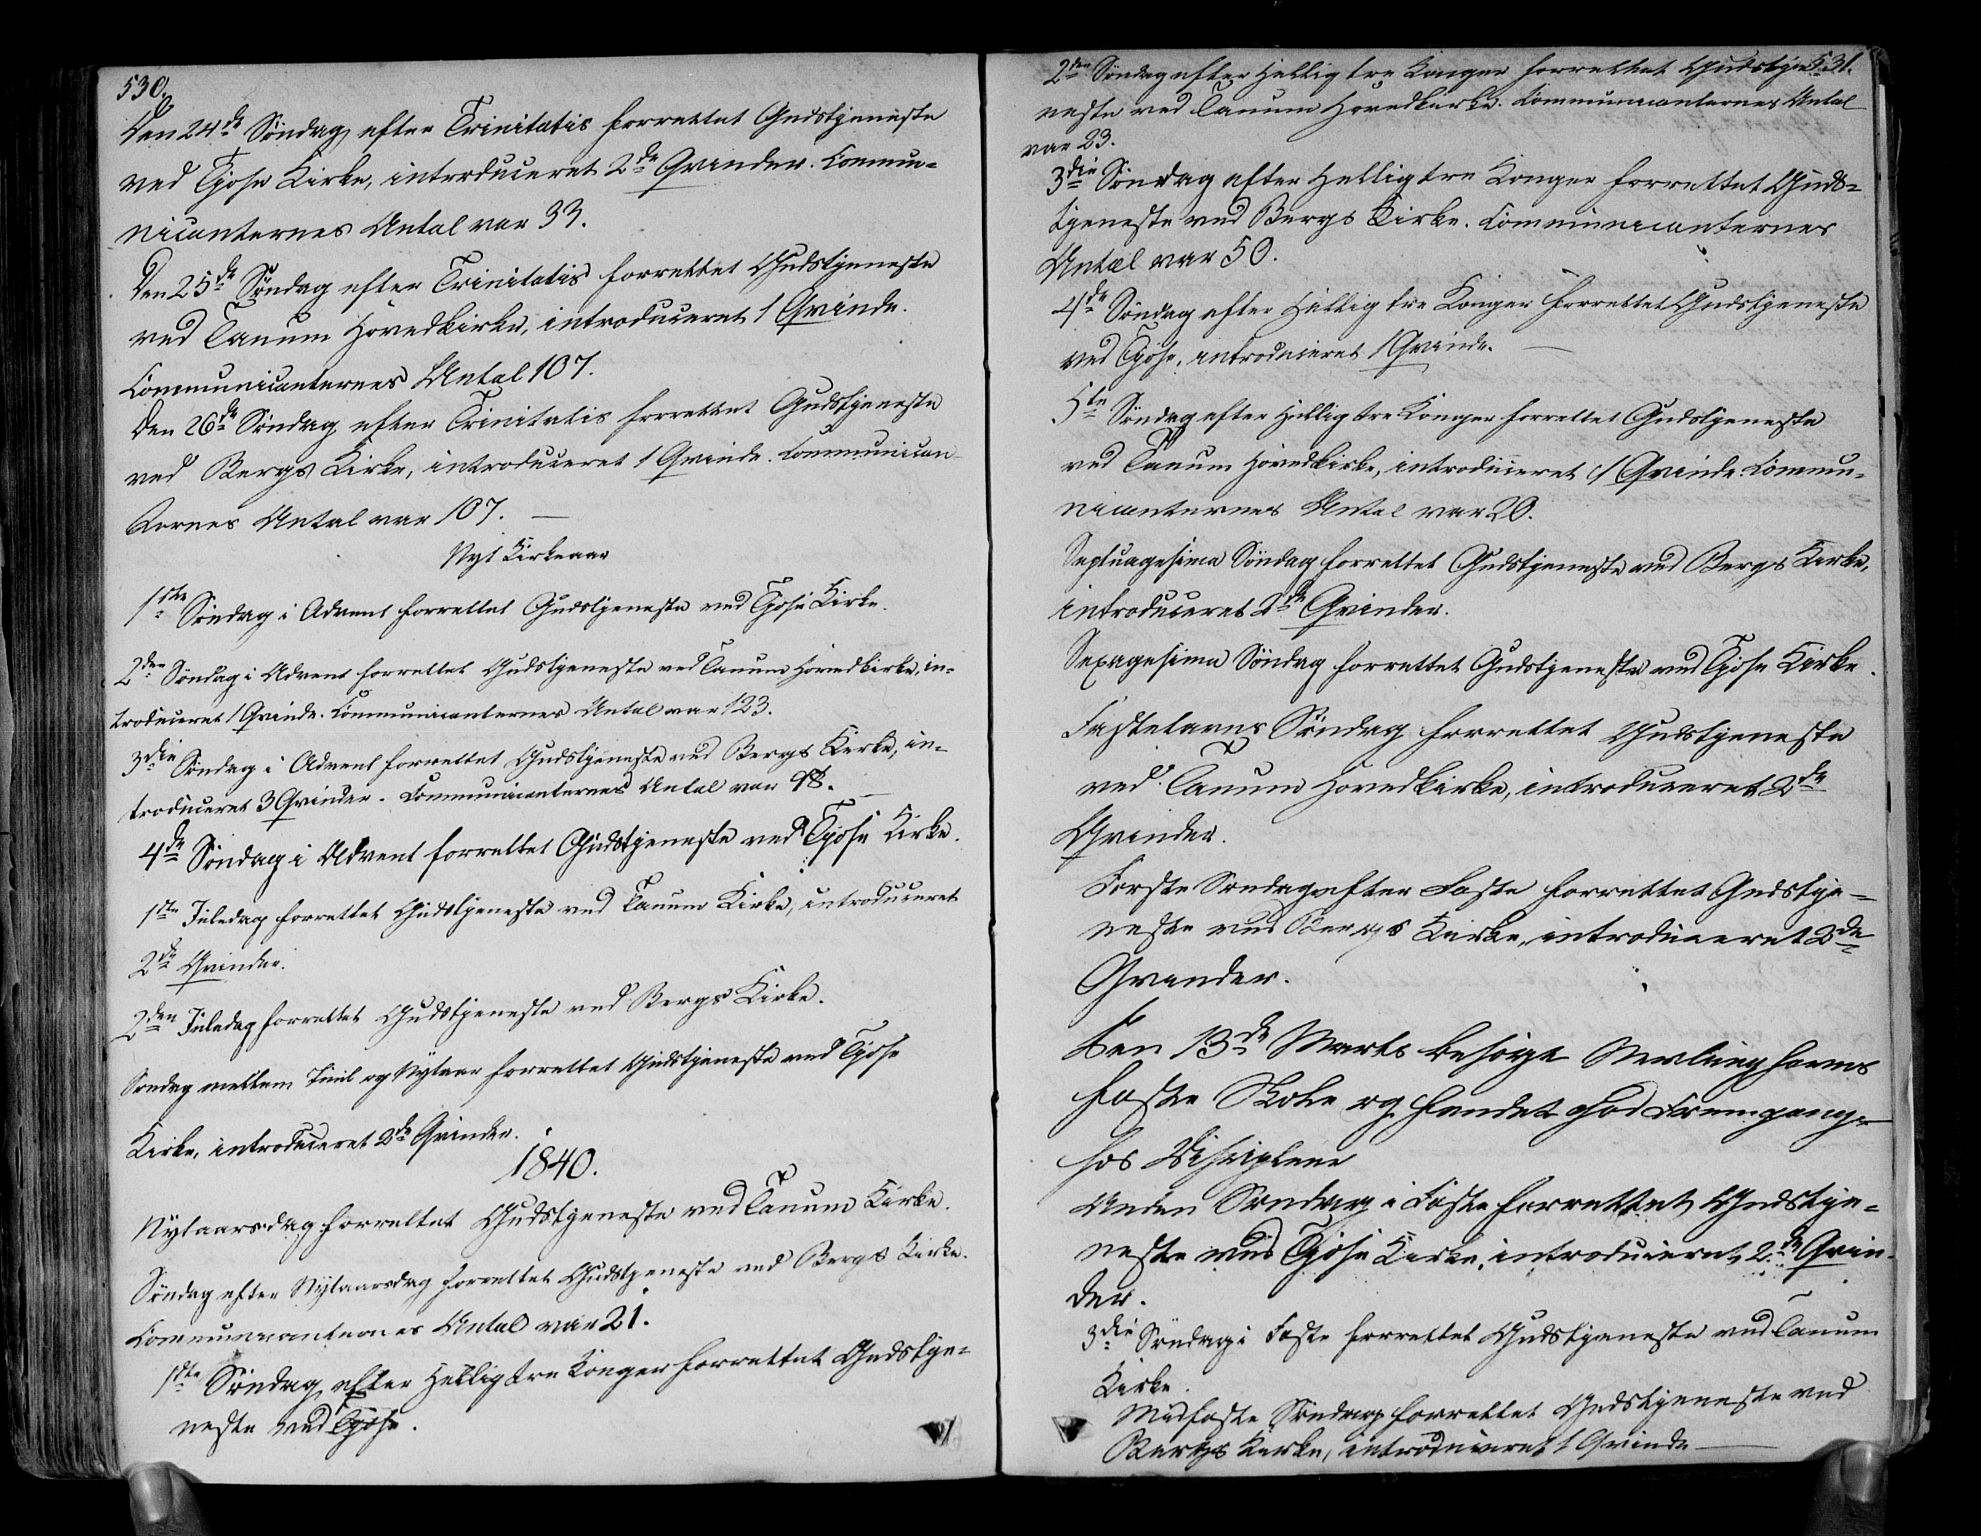 530.
Den 24de Søndag efter Trinitatis forrettet Gudstjeneste
ved Tjose Kirke, introduceret 2de Qvinder. Commu-
nicanternes Antal var 33.
Den 25de Søndag efter Trinitatis forrettet Gudstjeneste
ved Tanum Hovedkirke, introduceret 1 Qvinde.
Communicanternes Antal 107.
Den 26de Søndag efter Trinitatis forrettet Gudstjeneste
ved Bergs Kirke, introduceret 1 Qvinde. Communican-
ternes Antal var 107. —
Nyt Kirkeaar
1ste Søndag i Advent forrettet Gudstjeneste ved Tjose Kirke.
2den Søndag i Advent forrettet Gudstjeneste ved Tanum Hovedkirke, in-
troduceret 1 Qvinde. Communicanternes Antal var 123.
3die Søndag i Advent forrettet Gudstjeneste ved Bergs Kirke, in-
troduceret 3 Qvinder. Communicanternes Antal var 98. —
4de Søndag i Advent forrettet Gudstjeneste ved Tjose Kirke.
1ste Juledag forrettet Gudstjeneste ved Tanum Kirke, introduceret
2de Qvinder.
2den Juledag forrettet Gudstjeneste ved Bergs Kirke.
Søndag mellem Juul og Nytaar forrettet Gudstjeneste ved Tjose
Kirke, introduceret 2de Qvinder.
1840.
Nytaarsdag forrettet Gudstjeneste ved Tanum Kirke.
Søndag efter Nytaarsdag forrettet Gudstjeneste ved Bergs Kirke.
Communicanternes Antal var 21.
1ste Søndag efter Hellig tre Konger forrettet Gudstje-
neste ved Tjose.
531.
2den Søndag efter Hellig tre Konger forrettet Gudstje-
neste ved Tanum Hovedkirke. Communicanternes Antal
var 23.
3die Søndag efter Hellig tre Konger forrettet Guds-
tjeneste ved Bergs Kirke. Communicanternes
Antal var 50.
4de Søndag efter Hellig tre Konger forrettet Gudstjeneste
ved Tjose, introduceret 1 Qvinde. —
5te Søndag efter Hellig tre Konger forrettet Gudstjeneste
ved Tanum Hovedkirke, introduceret 1 Qvinde. Commu-
nicanternes Antal var 20.
Septuagesima Søndag forrettet Gudstjeneste ved Bergs Kirke,
introduceret 2de Qvinder.
Sexagesima Søndag forrettet Gudstjeneste ved Tjose Kirke.
Fastelavns Søndag forrettet Gudstjeneste
ved Tanum Hovedkirke, introduceret 2de
Qvinder.
Første Søndag efter Faste forrettet Gudstje-
neste ved Bergs Kirke, introduceret 2de
Qvinder.
Den 13de Marts besøgt
faste Skole og fandet god Fremgang
hos Disciplene
Anden Søndag i Faste forrettet Gudstje-
neste ved Tjose Kirke, introduceret 2de Qvin-
der.
3die Søndag i Faste forrettet Gudstjeneste ved Tanum
Kirke.
Midfaste Søndag forrettet Gudstjeneste ved
Bergs Kirke, introduceret 1 Qvinde —